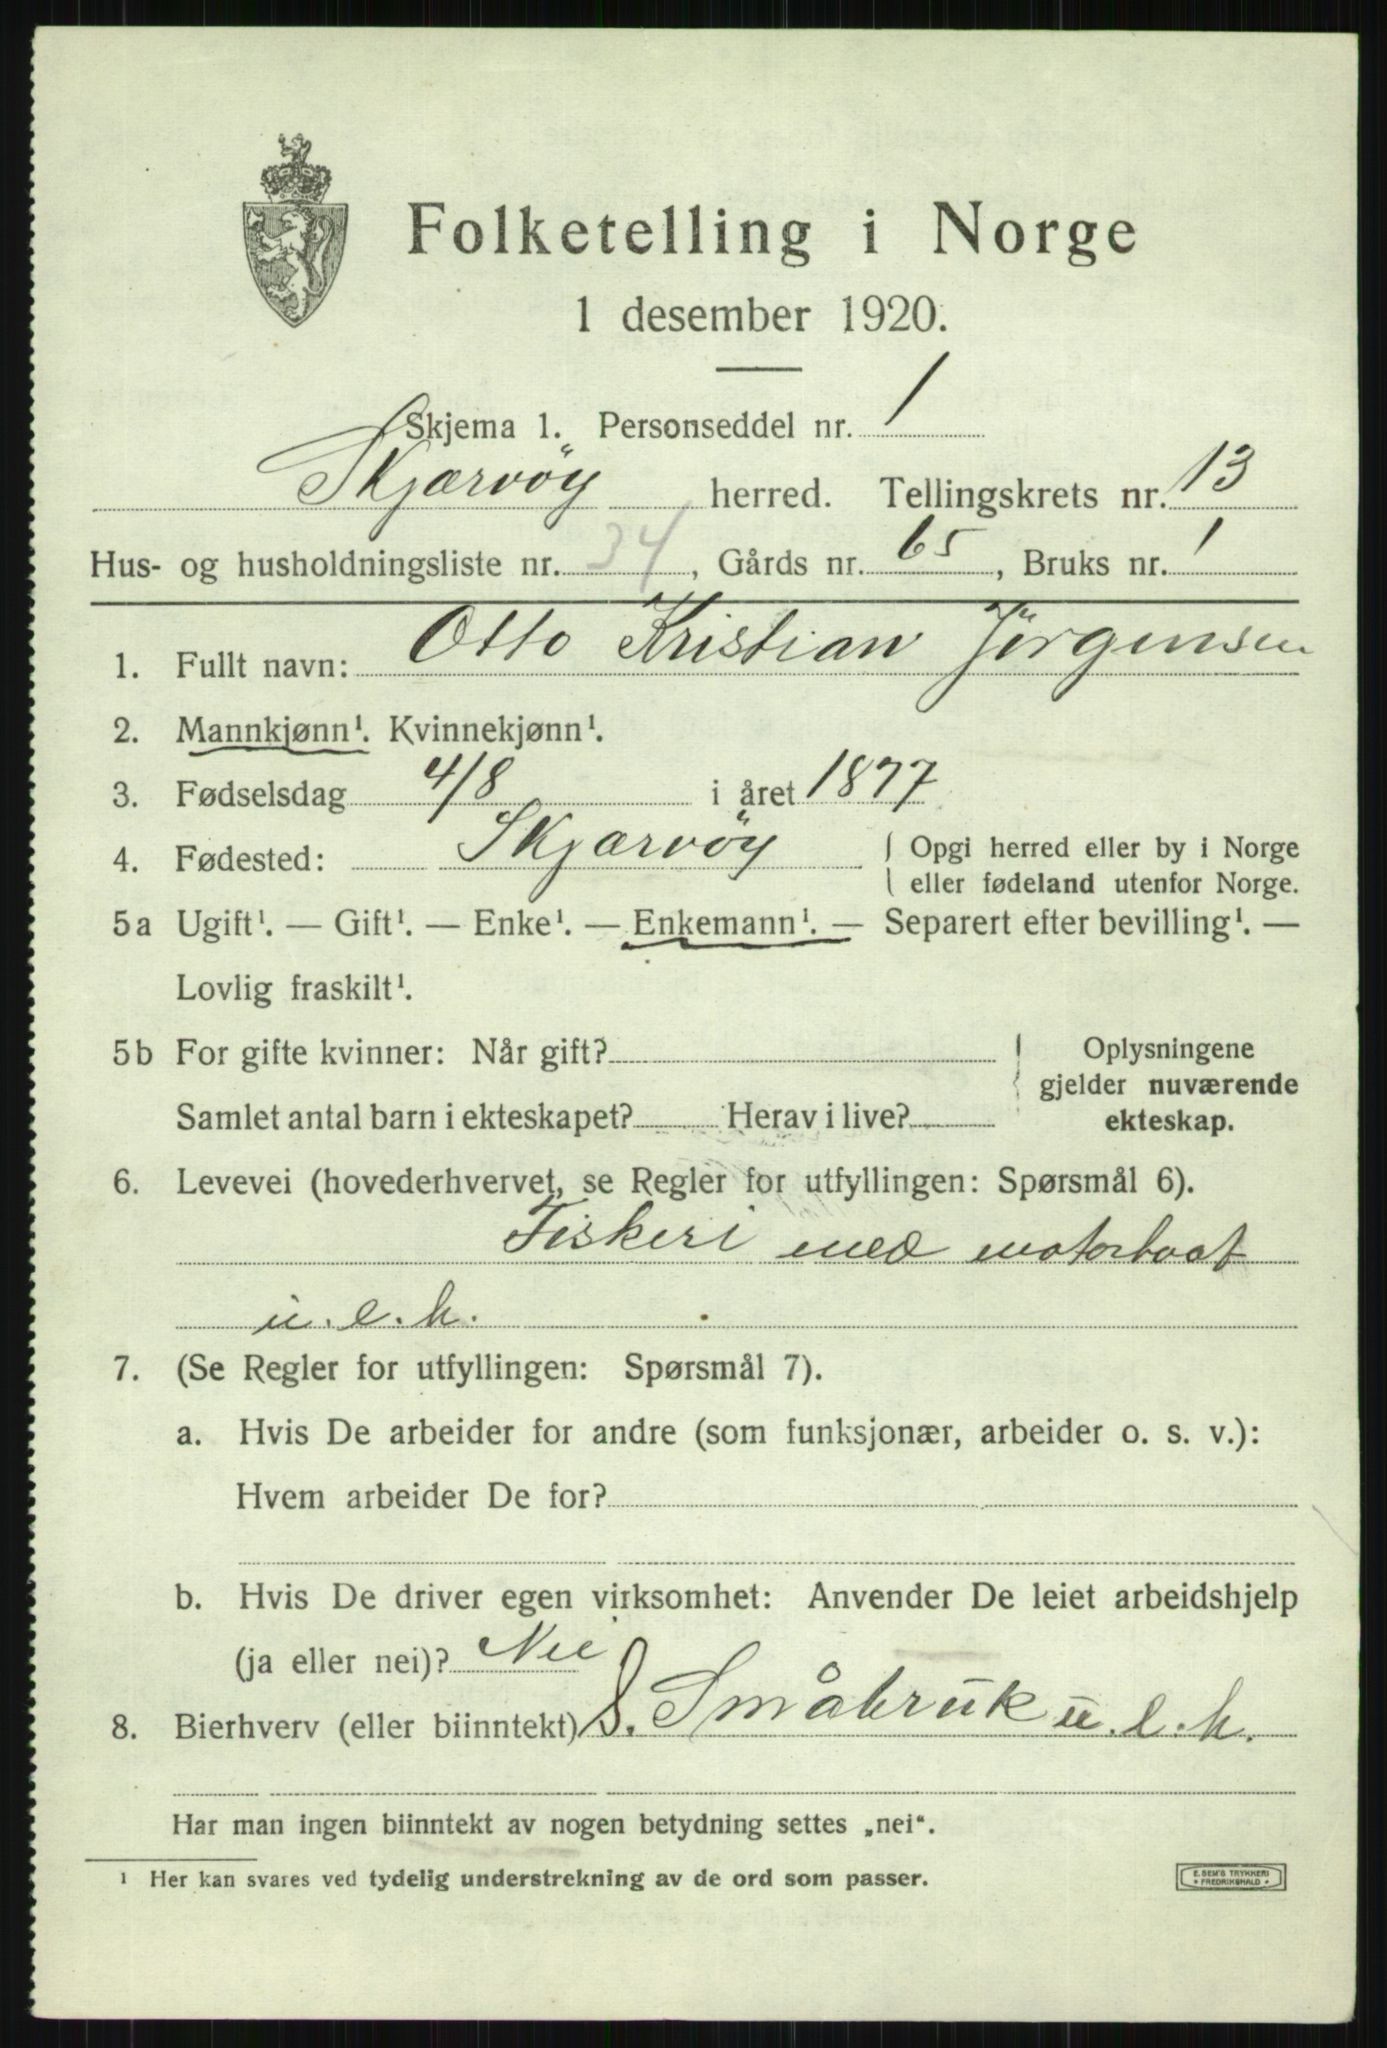 Folketelling i Norge
1 desember 1920.
Skjema 1. Personseddel nr. 1
Skjærvöy herred. Tellingskrets nr. 13
Hus- og husholdningsliste nr. 34, Gårds nr. 65, Bruks nr. 1
1. Fullt navn: Otto Kristian Jörgensen
2. Mannkjønn¹. Kvinnekjønn¹.
3. Fødselsdag 4/8 i året 1877
4. Fødested: Skjærvöy { Opgi herred eller by i Norge
eller fødeland utenfor Norge.
5a Ugift¹. — Gift¹. — Enke¹. — Enkemann¹. — Separert efter bevilling¹. —
Lovlig fraskilt¹.
5b For gifte kvinner: Når gift?
Samlet antal barn i ekteskapet? Herav i live?
Oplysningene
gjelder nuværende
ekteskap.
6. Levevei (hovederhvervet, se Regler for utfyllingen: Spørsmål 6).
Fiskeri med motorbaat
u.l.h.
7. (Se Regler for utfyllingen: Spørsmål 7).
a. Hvis De arbeider for andre (som funksjonær, arbeider o. s. v.):
Hvem arbeider De for?
b. Hvis De driver egen virksomhet: Anvender De leiet arbeidshjelp
(ja eller nei)? Nei
8. Bierhverv (eller biinntekt) S. Småbruk u.l.h.
Har man ingen biinntekt av nogen betydning settes „nei".
¹ Her kan svares ved tydelig understrekning av de ord som passer.
E. SEM'S TRYKKERI
• FREDRIKSHALD •